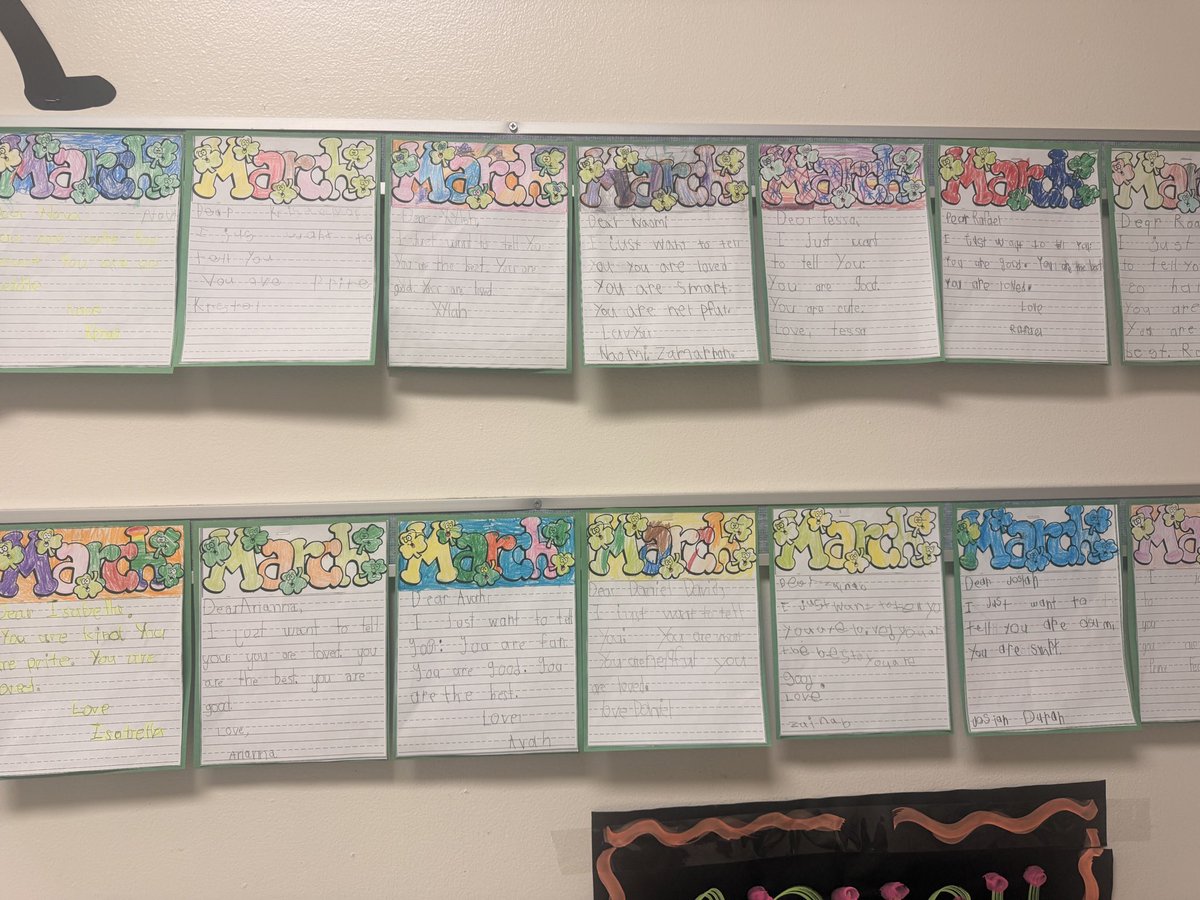 March
Dear Nova
March
I jus want to
tell You
You are Prite
Krystol
March
Dear Xylah,
I Just want to tell Yo
You are the best. You are
good. Your are loved
Xylah
March
Dear Naomi
I just want to tell
You You are loved
You are smart.
You are helpful.
Naomi. Zamarron.
March
Dear tessa,
I Just want
to tell You:
You are good.
You are cute.
Love, tessa
March
Dear Rafael
I Just want to tell You:
You are good. You are the best
You are loved.
Love
Rafael
March
Dear Roa
I just
to tell yo
You are
You are
best. Ro
March
Dear Isabella,
You are kind. You
are prite. You are
oved.
Love
Isabella
March
Dear Arianna,
I jozt want to tell
you: you are loved. you
are the best. you are
good.
Love,
Arianna
March
Dear Avah:
I Just want to tell
you: You are fun
You are good. You
are the best.
Love:
Avah
March
Dear Daniel David,
I just want tell
You: You are smart
You are helful you
are loved.
love Daniel
March
I Just want to
You are
the best
Love
zainab
March
Dear Josjah
I Just want to
tell you are
You are smrt.
Josjah Durah
Ma
I
to
you